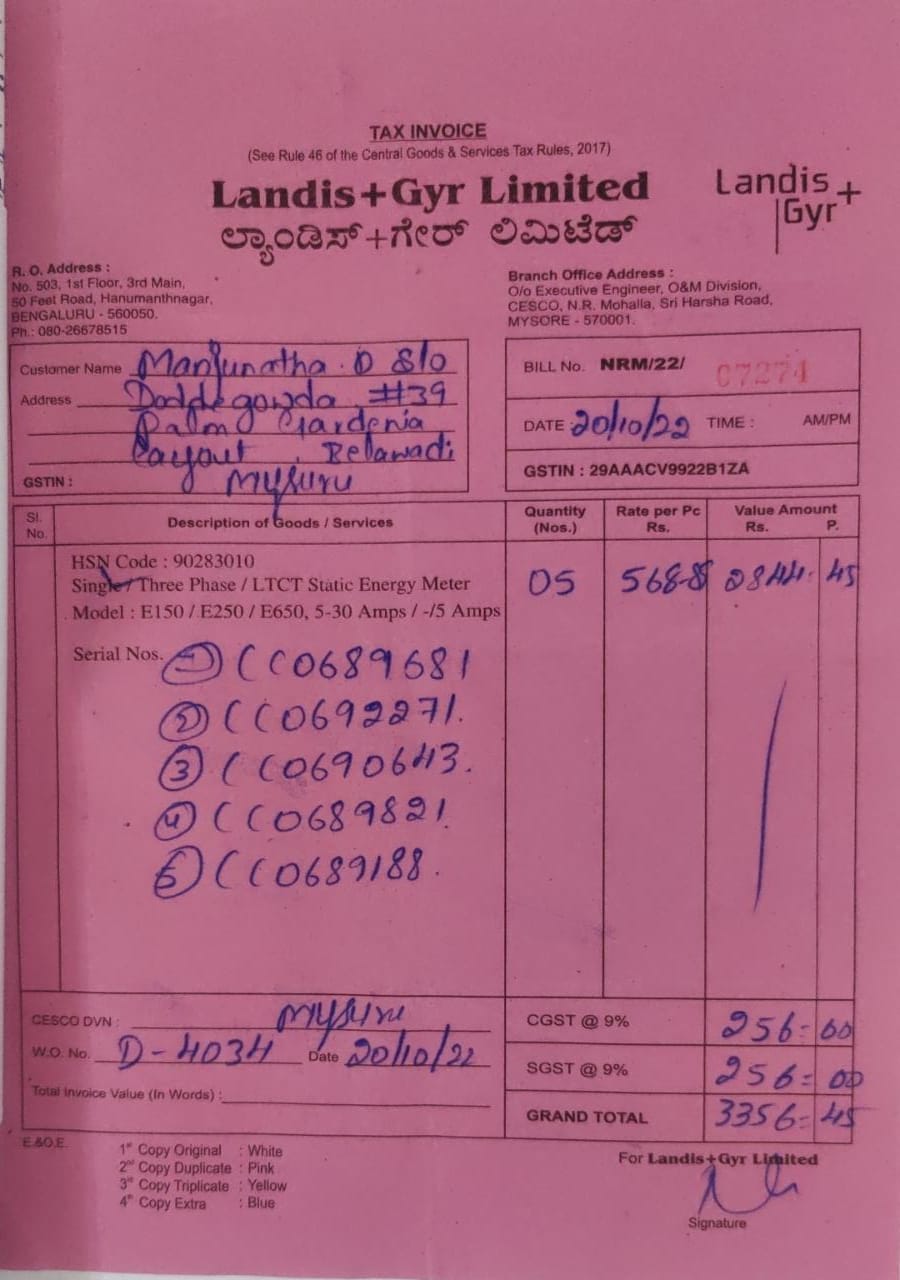 TAX INVOICE
(See Rule 46 of the Central Goods & Services Tax Rules, 2017)
Landis+Gyr Limited
ಲ್ಯಾಂಡಿಸ್+ಗೇರ್ ಲಿಮಿಟೆಡ್
Landis
Gyr+
R. O. Address :
No. 503, 1st Floor, 3rd Main,
50 Feet Road, Hanumanthnagar,
BENGALURU - 560050.
Ph.: 080-26678515
Branch Office Address :
O/o Executive Engineer, O&M Division,
CESCO, N.R. Mohalla, Sri Harsha Road,
MYSORE - 570001.
Customer Name Manjunatha . D S/o
Address Doddegowda #39
Palm Gardenia
Layout , Belawadi
Mysuru
GSTIN :
BILL No. NRM/22/ 07274
DATE : 20/10/22 TIME : AM/PM
GSTIN : 29AAACV9922B1ZA
Sl. No. Description of Goods / Services Quantity (Nos.) Rate per Pc Rs. Value Amount Rs. P.
HSN Code : 90283010
Single / Three Phase / LTCT Static Energy Meter 05 2844. 45
Model : E150 / E250 / E650, 5-30 Amps / -/5 Amps
Serial Nos. 1 CC0689681
2 CC0692271.
3 CC0690643.
4 CC0689821.
5 CC0689188.
CESCO DVN : Mysuru
W.O. No. D-4034 Date 20/10/22
Total Invoice Value (In Words) :
CGST @ 9% 256= 00
SGST @ 9% 256= 00
GRAND TOTAL 3356= 45
E.&O.E.
1st Copy Original : White
2nd Copy Duplicate : Pink
3rd Copy Triplicate : Yellow
4th Copy Extra : Blue
For Landis+Gyr Limited
Signature